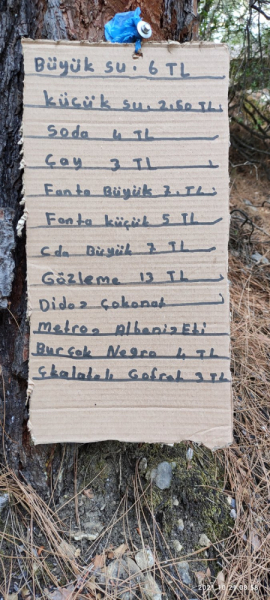 Büyük su. 6 TL
küçük su. 2.50 TL.
Soda 4 TL
Çay 3 TL
Fanta Büyük 7. TL.
Fanta küçük 5 TL
Cda Büyük 7 TL
Gözleme 13 TL
Didos Çokonat
Metros Albenis Eti
Burçak Negro 4 TL
Çkalatalı Gofret 3 TL